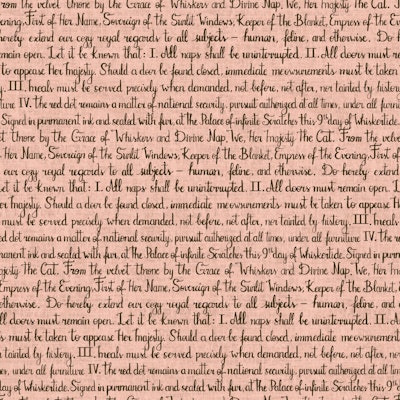 From the velvet throne by the Grace of Whiskers and Divine Nap, We, Her Majesty The Cat. F
First of Her Name, Sovereign of the Sunlit Windows, Keeper of the Blanket, Empress of the E
hereby extend our cozy royal regards to all subjects – human, feline, and otherwise. Do h
remain open. Let it be known that: I. All naps shall be uninterrupted. II. All doors must re
to appease Her Majesty. Should a door be found closed, immediate meowsurements must be taken
y. III. meals must be served precisely when demanded, not before, not after, nor tainted by history.
ture IV. the red dot remains a matter of national security, pursuit authorized at all times, under all furni
Signed in purrmanent ink and sealed with fur, at The Palace of infinite Scratches this 9th day of Whiskertide.
et throne by the Grace of Whiskers and Divine Nap, We, Her Majesty The Cat. From the velv
f Her Name, Sovereign of the Sunlit Windows, Keeper of the Blanket, Empress of the Evening, First of H
our cozy royal regards to all subjects – human, feline, and otherwise. Do hereby extend
Let it be known that: I. All naps shall be uninterrupted. II. All doors must remain open. L
er Majesty. Should a door be found closed, immediate meowsurements must be taken to appease H
must be served precisely when demanded, not before, not after, nor tainted by history. III. meals
d dot remains a matter of national security, pursuit authorized at all times, under all furniture IV. the re
nent ink and sealed with fur, at The Palace of infinite Scratches this 9th day of Whiskertide. Signed in purrm
ajesty The Cat. From the velvet throne by the Grace of Whiskers and Divine Nap, We, Her M
Empress of the Evening, First of Her Name, Sovereign of the Sunlit Windows, Keeper of the Blanket, E
otherwise. Do hereby extend our cozy royal regards to all subjects – human, feline, and
ll doors must remain open. Let it be known that: I. All naps shall be uninterrupted. II. A
s must be taken to appease Her Majesty. Should a door be found closed, immediate meowsurements
tainted by history. III. meals must be served precisely when demanded, not before, not after, nor
er all furniture IV. the red dot remains a matter of national security, pursuit authorized at all times, und
day of Whiskertide. Signed in purrmanent ink and sealed with fur, at The Palace of infinite Scratches this 9th